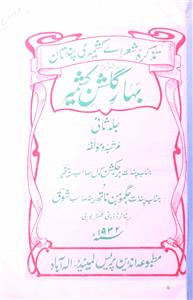 تذکرۂ شعراے کشمیری پنڈتان
بہار گلشن کشمیر
جلد ثانی
مرتبہ و مؤلفہ
جناب پنڈت برجکشن کول صاحب بیخبر
جناب پنڈت جگموہن ناتھ رینہ صاحب شوق
ریٹائرڈ ڈپٹی کلکٹر یوپی
۱۹۳۲
مطبوعہ انڈین پریس لمیٹیڈ، الہ آباد